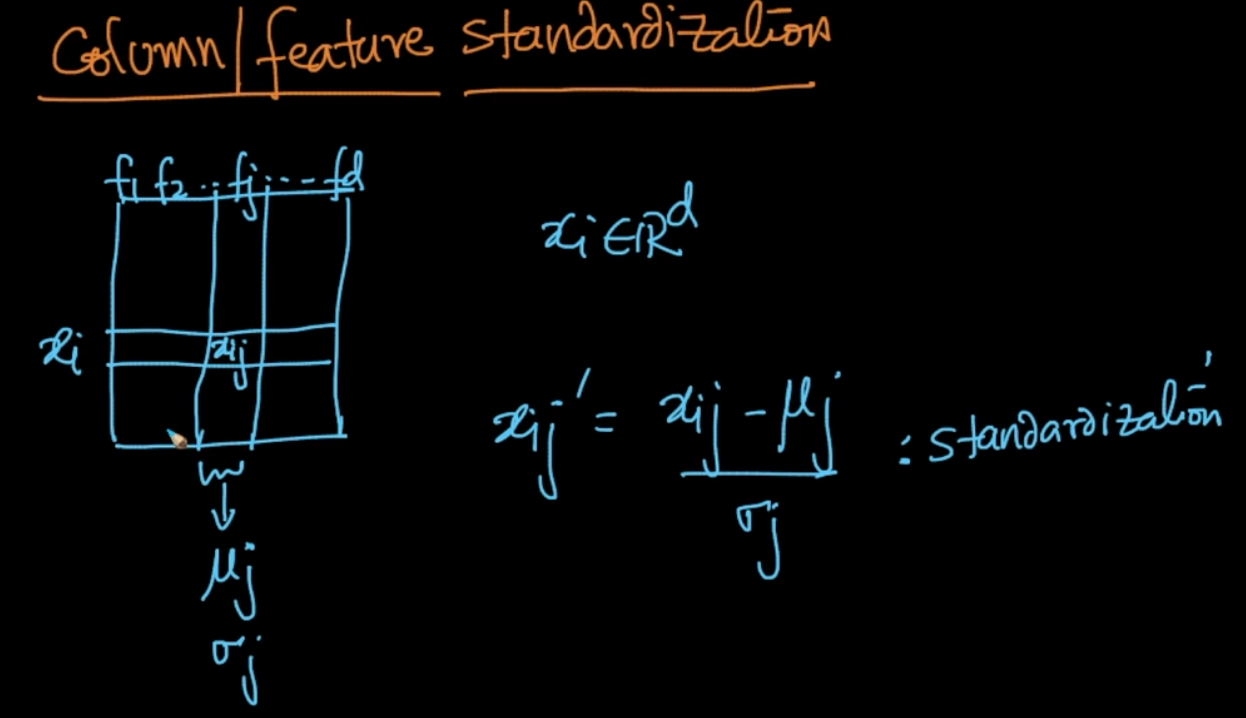 Column/feature standardization
f1 f2 .. fj ... fd
xi ∈ ℝ^d
xi
xij
xij' = (xij - μj) / σj : standardization
μj
σj